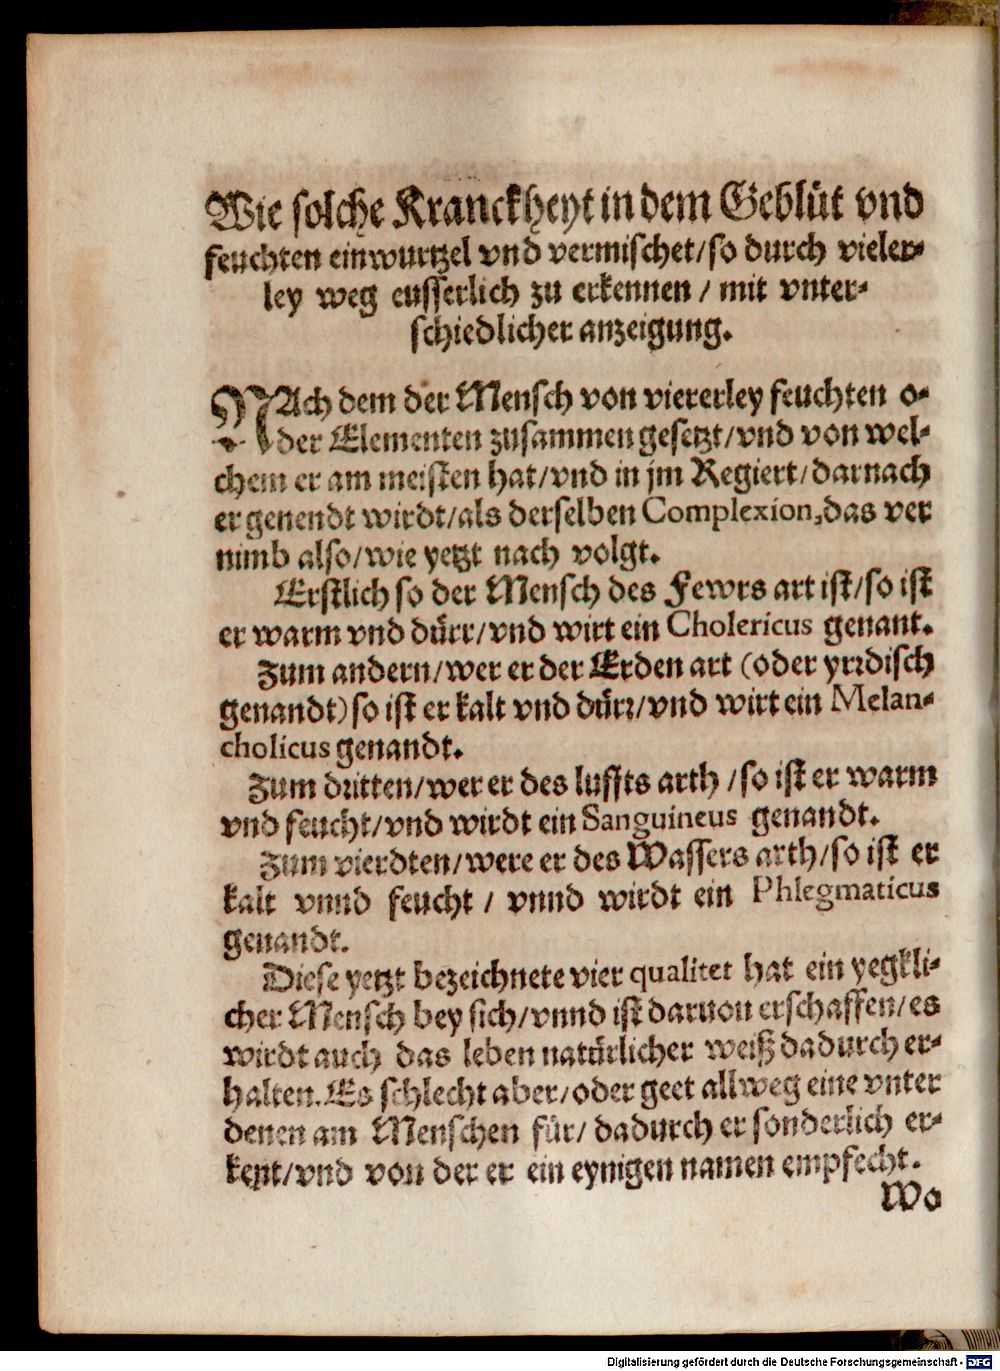 Wie solche Kranckheyt in dem Geblüt vnd
feuchten einwurtzel vnd vermischet/so durch vieler-
ley weg eusserlich zu erkennen / mit vnter-
schiedlicher anzeigung.
NAch dem der Mensch von viererley feuchten o-
der Elementen zusammen gesetzt/vnd von wel-
chem er am meisten hat/vnd in jm Regiert/darnach
er genendt wirdt/als derselben Complexion,das ver
nimb also/wie yetzt nach volgt.
Erstlich so der Mensch des Fewrs art ist/so ist
er warm vnd dürr/vnd wirt ein Cholericus genant.
Zum andern/wer er der Erden art (oder yrdisch
genandt) so ist er kalt vnd dürr/vnd wirt ein Melan-
cholicus genandt.
Zum dritten/wer er des luffts arth /so ist er warm
vnd feucht/vnd wirdt ein Sanguineus genandt.
Zum vierdten/were er des Wassers arth/so ist er
kalt vnnd feucht / vnnd wirdt ein Phlegmaticus
genandt.
Diese yetzt bezeichnete vier qualitet hat ein yegkli-
cher Mensch bey sich/vnnd ist daruon erschaffen/es
wirdt auch das leben natürlicher weiß dadurch er-
halten. Es schlecht aber/oder geet allweg eine vnter
denen am Menschen für/ dadurch er sonderlich er-
kent/vnd von der er ein eynigen namen empfecht.
Wo
Digitalisierung gefördert durch die Deutsche Forschungsgemeinschaft - DFG